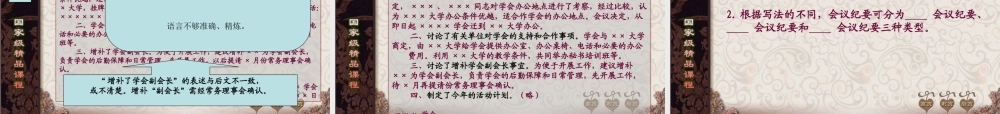 国家级精品课程
× 大学，挂牌
语言不够准确、精炼。
二、学会
电话和必要的办公
班等。
三、增补了学会副会长。为便于开展工作，建议增补 × × 为学会副会长，
负责学会的后勤保障和日常管理，先开展工作，以后提请 × 月份常务理事会
“增补了学会副会长”的表述与后文不一致，
或不清楚。增补“副会长”需经常务理事会确认。
国家级精品课程
定，× × ×、× × × 同志对学会办公地点进行了考察，经过比较，认
为 × × × 大学办公条件优越，适合作学会的办公地点，会议决定，从
即日起 × × × × 学会迁到 × × 大学办公。
二、讨论了有关单位对学会的支持和合作事项。学会与 × × 大学
商定，由 × × 大学给学会提供办公室、办公桌椅、电话和必要的办公
费用。利用 × × 大学的教学条件，共同举办秘书培训班等。
三、讨论了增补学会副会长事宜。为便于开展工作，建议增补
× × 为学会副会长，负责学会的后勤保障和日常管理。先开展工作，
待 × 月再提请份常务理事会确认。
四、制定了今年的活动计划。（略）
国家级精品课程
2. 根据写法的不同，会议纪要可分为____ 会议纪要、
____ 会议纪要和____ 会议纪要三种类型。